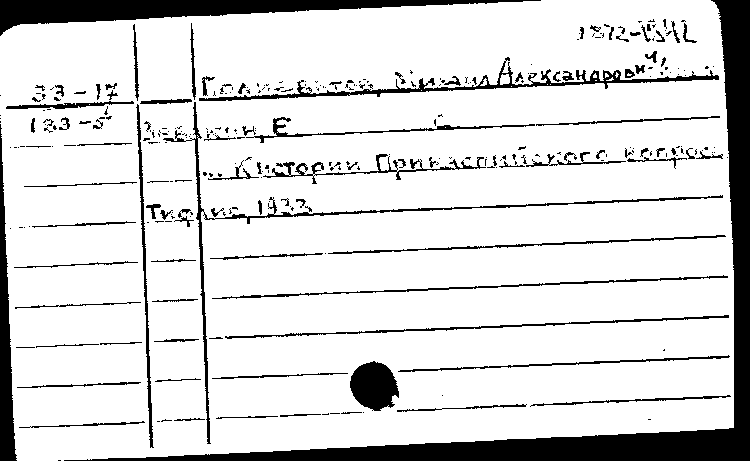 1872-1942
33-17 Полиевктов, Михаил Александрович,
133-5 Зевакин, Е С
... К истории Прикаспийского вопроса
Тифлис, 1933